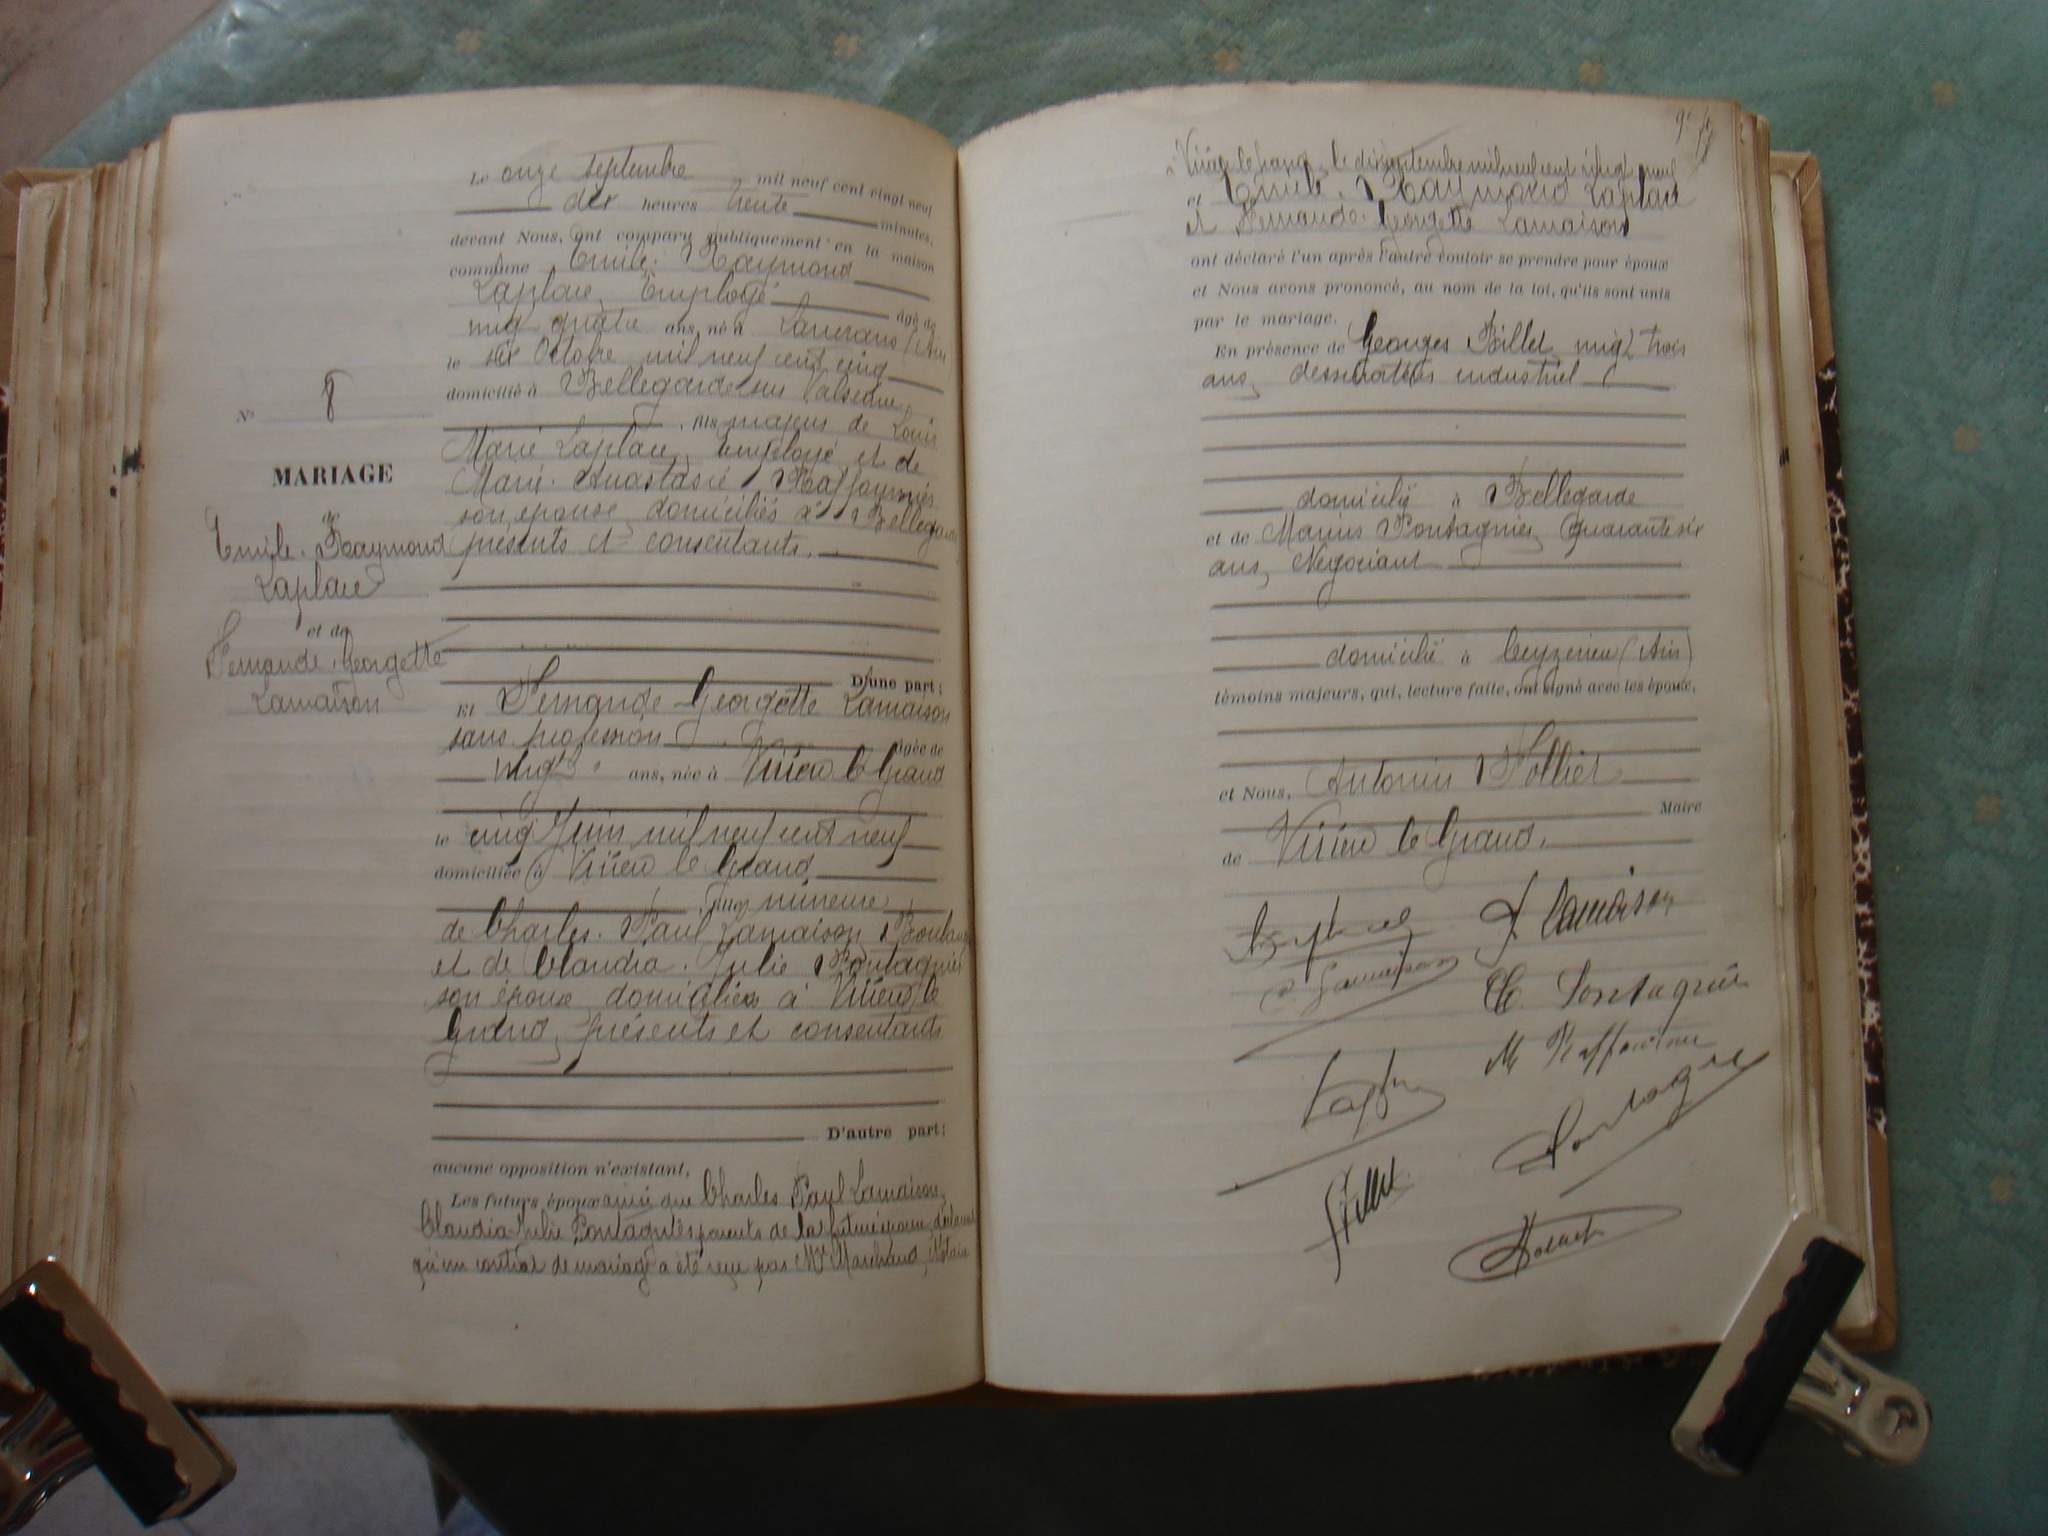 Le onze septembre mil neuf cent vingt neuf
dix heures trente minutes,
devant Nous, ont comparu publiquement en la maison
commune Emile Raymond
Laplace, Employé âgé de
vingt quatre ans, né à (Ain
le six Octobre mil neuf cent cinq
domicilié à Bellegarde sur Valserine,
fils majeur de Louis
N° 8
Marie Laplace, employé et de
MARIAGE
Marie Anastasie Raffournier
son épouse domiciliés à Bellegarde
de
Emile Raymond
Laplace
et de
Fernande Georgette
Lamaison
présents et consentants.
D'une part;
Et Fernande Georgette Lamaison
sans profession âgée de
vingt ans, née à Virieu le Grand
le cinq Juin mil neuf cent neuf
domiciliée à Virieu le Grand
fille mineure
de Charles Paul Lamaison, Boulanger
et de Claudia Julie Pontagnier
son épouse domiciliés à Virieu le
Grand, présents et consentants
D'autre part;
aucune opposition n'existant,
Les futurs époux ainsi que Charles Paul Lamaison,
Claudia Julie Pontagnier parents de la future épouse déclarent
qu'un contrat de mariage a été reçu par Me Marchand, Notaire
à Virieu le Grand, le dix septembre mil neuf cent vingt neuf
et Emile Raymond Laplace
et Fernande Georgette Lamaison
ont déclaré l'un après l'autre vouloir se prendre pour époux
et Nous avons prononcé, au nom de la loi, qu'ils sont unis
par le mariage.
En présence de Georges Billet, vingt trois
ans, dessinateur industriel
domicilié à Bellegarde
et de Marius Pontagnier, quarante six
ans, Négociant
domicilié à Ceyzerieu (Ain)
témoins majeurs, qui, lecture faite, ont signé avec les époux,
et Nous, Antonin Sollier
Maire
de Virieu le Grand.
F. Lamaison
Lamaison
C. Pontagnier
M Raffournier
Pontagnier
Billet